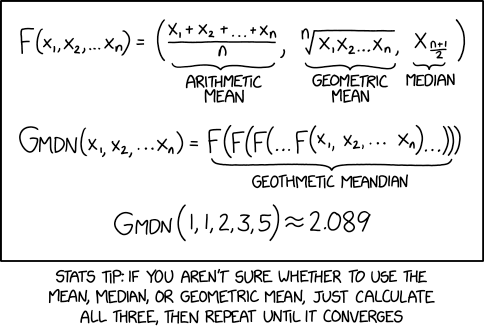 F(x₁,x₂,...xₙ) = ((x₁+x₂+...+xₙ)/n, ⁿ√(x₁x₂...xₙ), x_((n+1)/2))
ARITHMETIC MEAN
GEOMETRIC MEAN
MEDIAN
GMDN(x₁,x₂,...xₙ) = F(F(F(...F(x₁, x₂,... xₙ)...)))
GEOTHMETIC MEANDIAN
GMDN(1,1,2,3,5)≈2.089
STATS TIP: IF YOU AREN'T SURE WHETHER TO USE THE
MEAN, MEDIAN, OR GEOMETRIC MEAN, JUST CALCULATE
ALL THREE, THEN REPEAT UNTIL IT CONVERGES